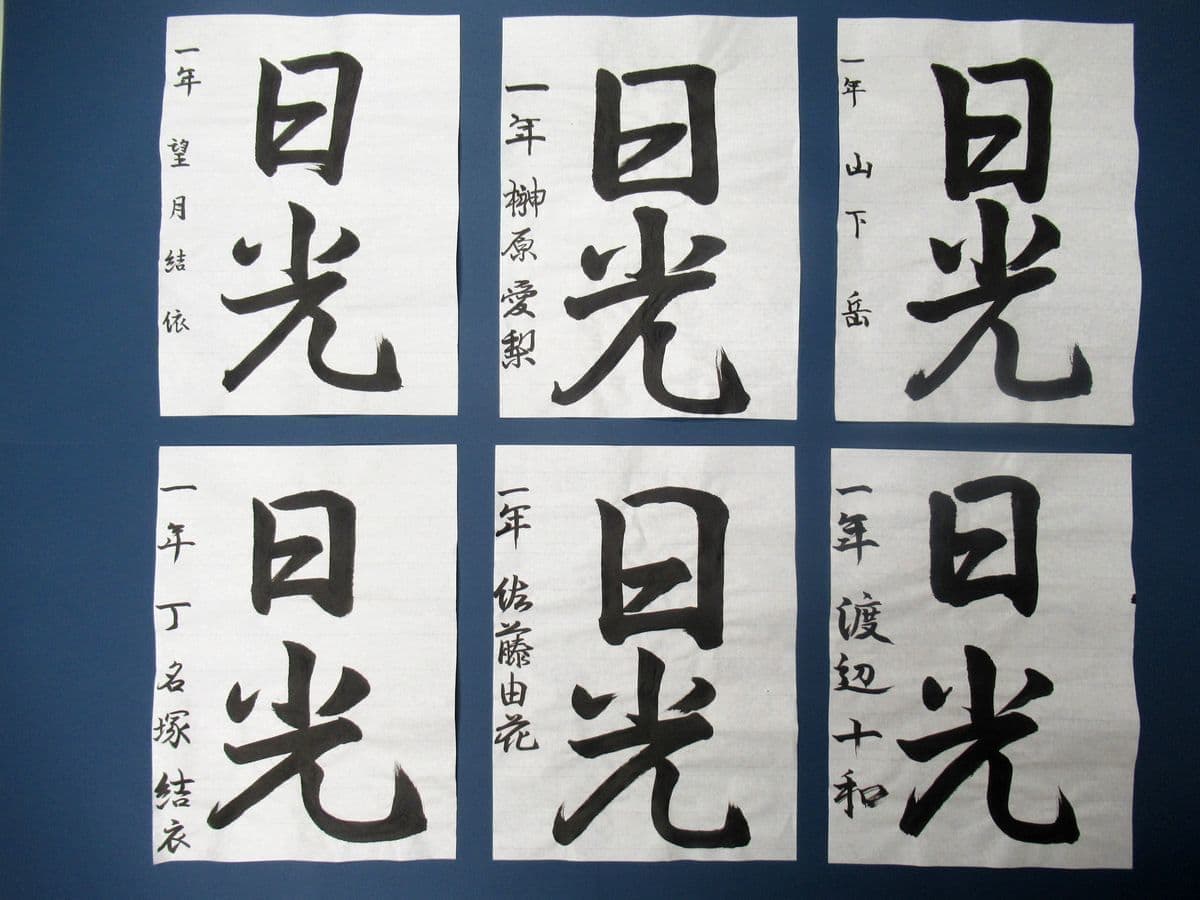 日光
一年 望月結依
日光
一年 榊原愛梨
日光
一年 山下岳
日光
一年 丁名塚結衣
日光
一年 佐藤由花
日光
一年 渡辺十和